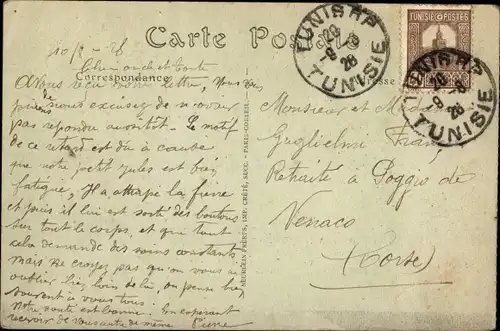 Carte Postale
Correspondance
TUNIS RP
20
8
26
TUNISIE
TUNISIE POSTES
TUNIS RP
TUNISIE
10/8 - 26
Bien cher oncle et tante
Avons reçu votre lettre, Nous vous
prions nous excuser de ne vous avoir
pas répondu aussitôt. Le motif
de ce retard est dû à cause
que notre petit Jules est bien
fatigué, Il a attrapé la fièvre
et puis il lui est sorti des boutons
sur tout le corps, et que tout
cela demande des soins constants
mais ne croyez pas qu'on vous a
oublier bien loin de là, on pense bien
souvent à vous tous.
Notre santé est bonne. En espérant
recevoir de vous autant de même Pierre
NEURDEIN FRÈRES, IMP. CRÉTÉ, SUCC. - PARIS-CORBEIL
Monsieur et Mme
Guglielmi Franç
Retraité à Poggio de
Venaco
(Corse)